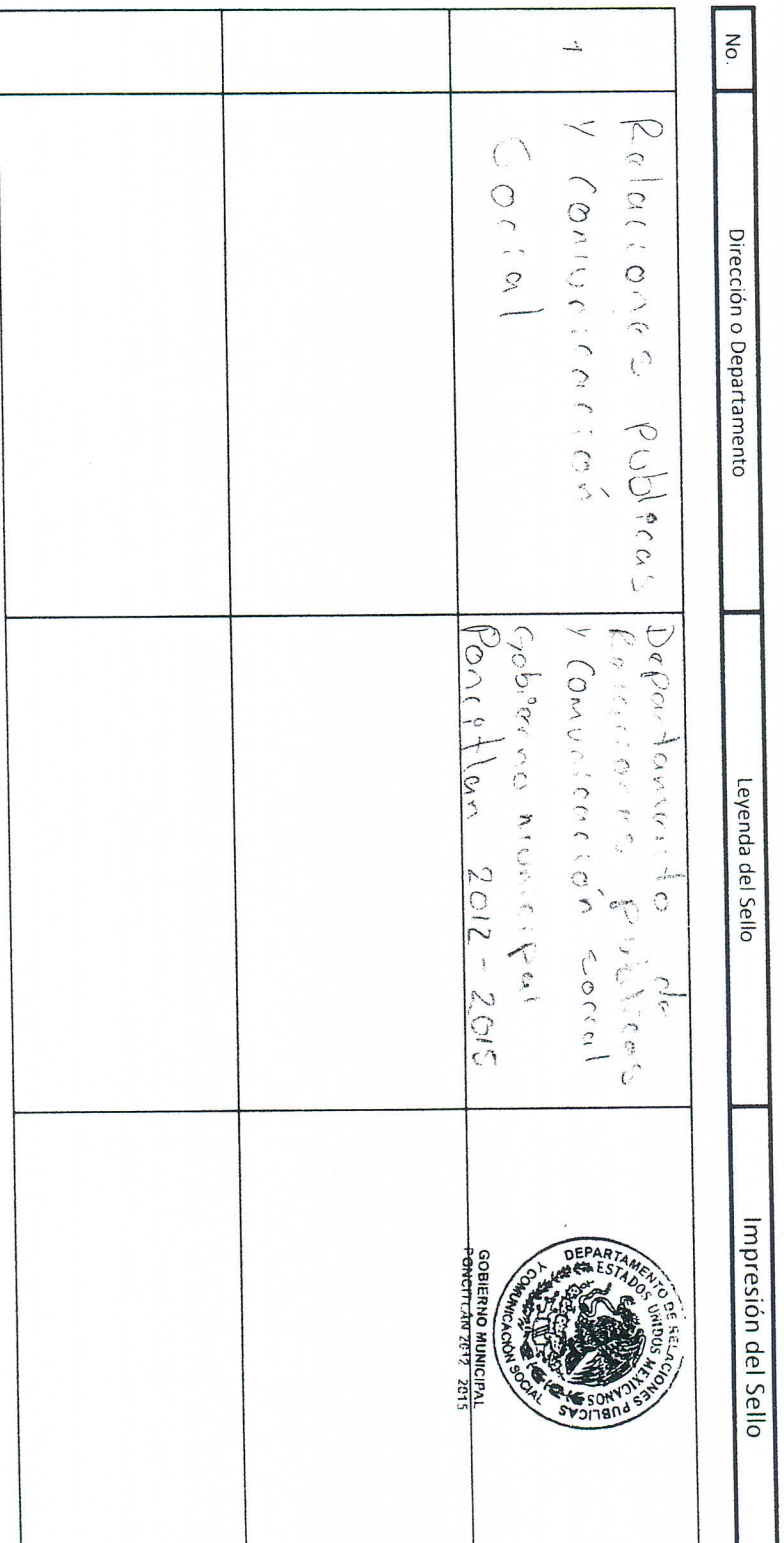 No.
Dirección o Departamento
Leyenda del Sello
Impresión del Sello
1
Relaciones publicas
y comunicación
Social
Departamento de
Relaciones publicas
y Comunicación social
Gobierno municipal
Poncitlan 2012 - 2015
DEPARTAMENTO DE RELACIONES PUBLICAS
Y COMUNICACIÓN SOCIAL
ESTADOS UNIDOS MEXICANOS
GOBIERNO MUNICIPAL
PONCITLAN 2012 2015